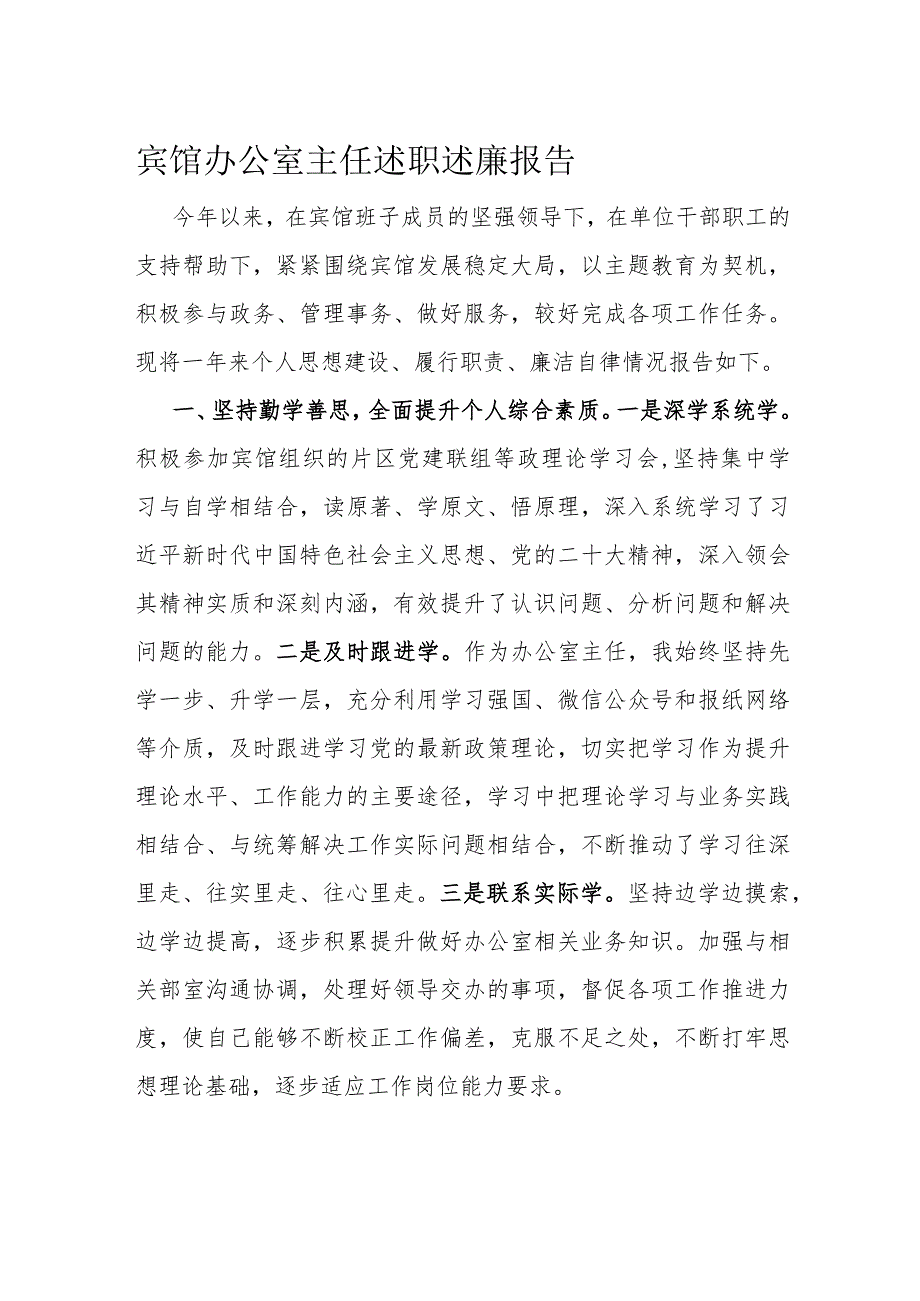 宾馆办公室主任述职述廉报告
今年以来，在宾馆班子成员的坚强领导下，在单位干部职工的
支持帮助下，紧紧围绕宾馆发展稳定大局，以主题教育为契机，
积极参与政务、管理事务、做好服务，较好完成各项工作任务。
现将一年来个人思想建设、履行职责、廉洁自律情况报告如下。
一、坚持勤学善思，全面提升个人综合素质。一是深学系统学。
积极参加宾馆组织的片区党建联组等政理论学习会,坚持集中学
习与自学相结合，读原著、学原文、悟原理，深入系统学习了习
近平新时代中国特色社会主义思想、党的二十大精神，深入领会
其精神实质和深刻内涵，有效提升了认识问题、分析问题和解决
问题的能力。二是及时跟进学。作为办公室主任，我始终坚持先
学一步、升学一层，充分利用学习强国、微信公众号和报纸网络
等介质，及时跟进学习党的最新政策理论，切实把学习作为提升
理论水平、工作能力的主要途径，学习中把理论学习与业务实践
相结合、与统筹解决工作实际问题相结合，不断推动了学习往深
里走、往实里走、往心里走。三是联系实际学。坚持边学边摸索，
边学边提高，逐步积累提升做好办公室相关业务知识。加强与相
关部室沟通协调，处理好领导交办的事项，督促各项工作推进力
度，使自己能够不断校正工作偏差，克服不足之处，不断打牢思
想理论基础，逐步适应工作岗位能力要求。